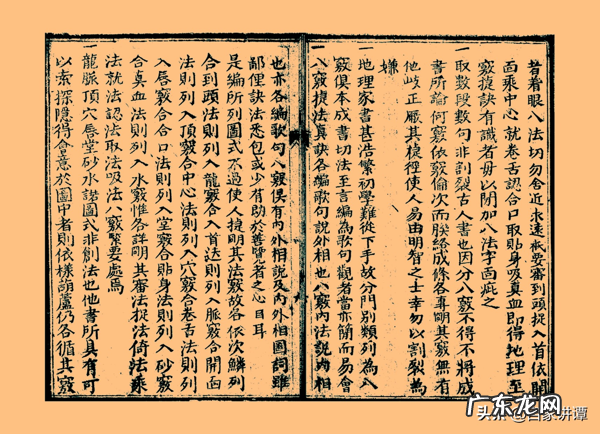 者着眼八法切勿舍近求遠秪要審到頭捉入首依開
面乘中心就卷舌認合口取貼身吸真血即得地理至
竅捷訣有識者毋以閒加八法字面疵之
一取數段數句非割裂古人書也因分八竅不得不將成
書所論何竅依竅倫次而朕絡成條各專明其竅無有
他岐正厰其捷徑使人易由明智之士幸勿以割裂為
嫌
一地理家書甚浩繁初學難從下手故分門別類列為八
竅俱本成書切法至言編為歌句觀者當亦簡而易會
一八竅捷法真訣各編歌句說外相也八竅內法說內相
也亦各編歌句八竅俱有內外相說及內外相圖詞雖
鄙俚訣法悉包或少有助於善覽者之心目耳
一是編所列圖式不過使人捷明其法竅故各依次鱗列
合到頭法則列入龍竅合入首法則列入脈竅合開面
法則列入頂竅合中心法則列入穴竅合卷舌法則列
入唇竅合合口法則列入堂竅合貼身法則列入砂竅
合真血法則列入水竅惟各詳明其審法捉法倚法乘
法就法認法取法吸法八竅緊要處焉
一龍脈頂穴唇堂砂水諸圖式非創法也他書所具有可
以索探隱得會意於圖中者則依樣葫蘆仍各循其竅
广东龙网
头条 @百家讲谭